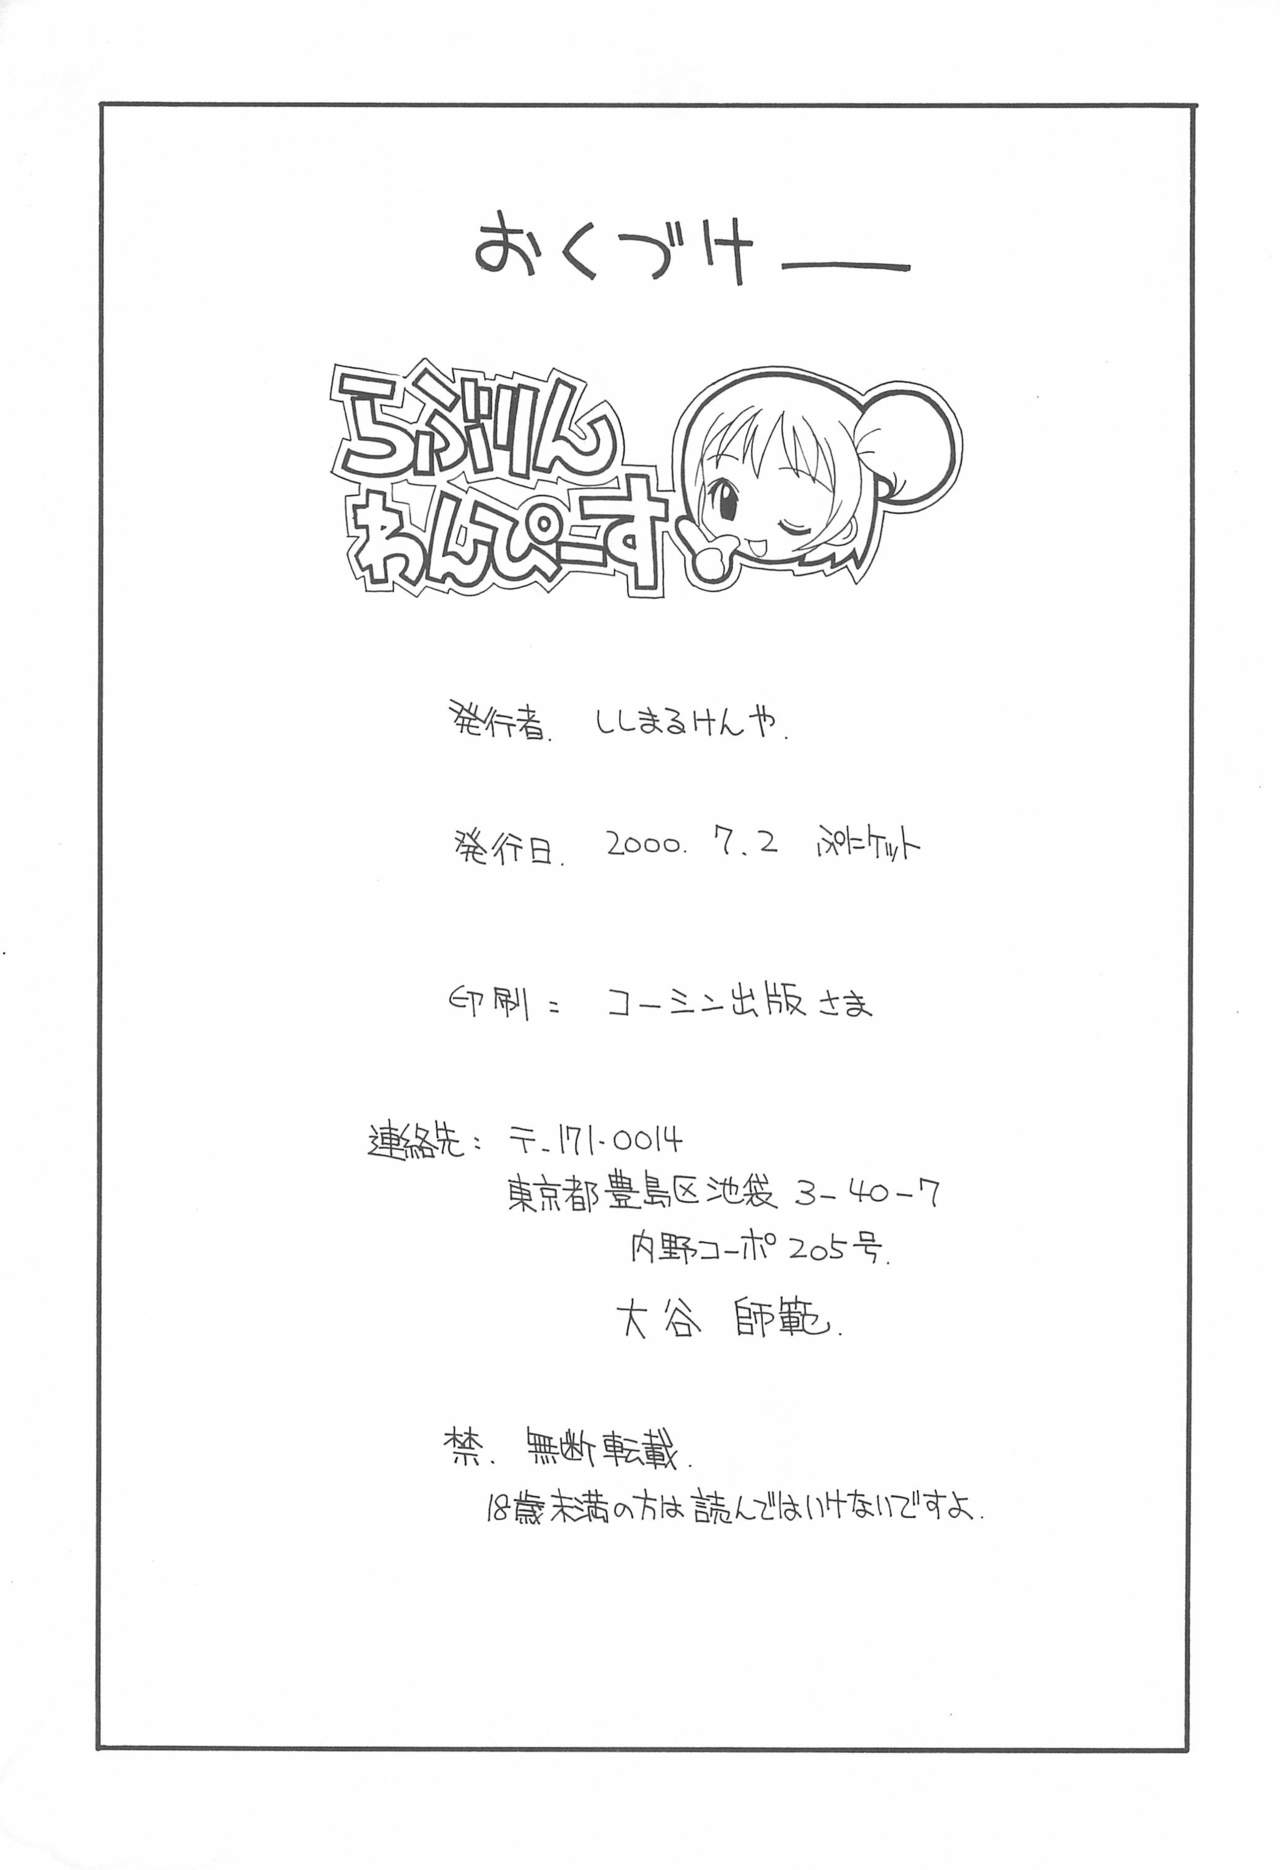 おくづけ
らぶりん
わんぴーす
発行者. ししまるけんや.
発行日. 2000. 7. 2 ぷにケット
印刷: コーミン出版さま
連絡先: 〒-171-0014
東京都豊島区池袋 3-40-7
内野コーポ 205号.
大谷 師範.
禁. 無断転載.
18歳未満の方は読んではいけないですよ.